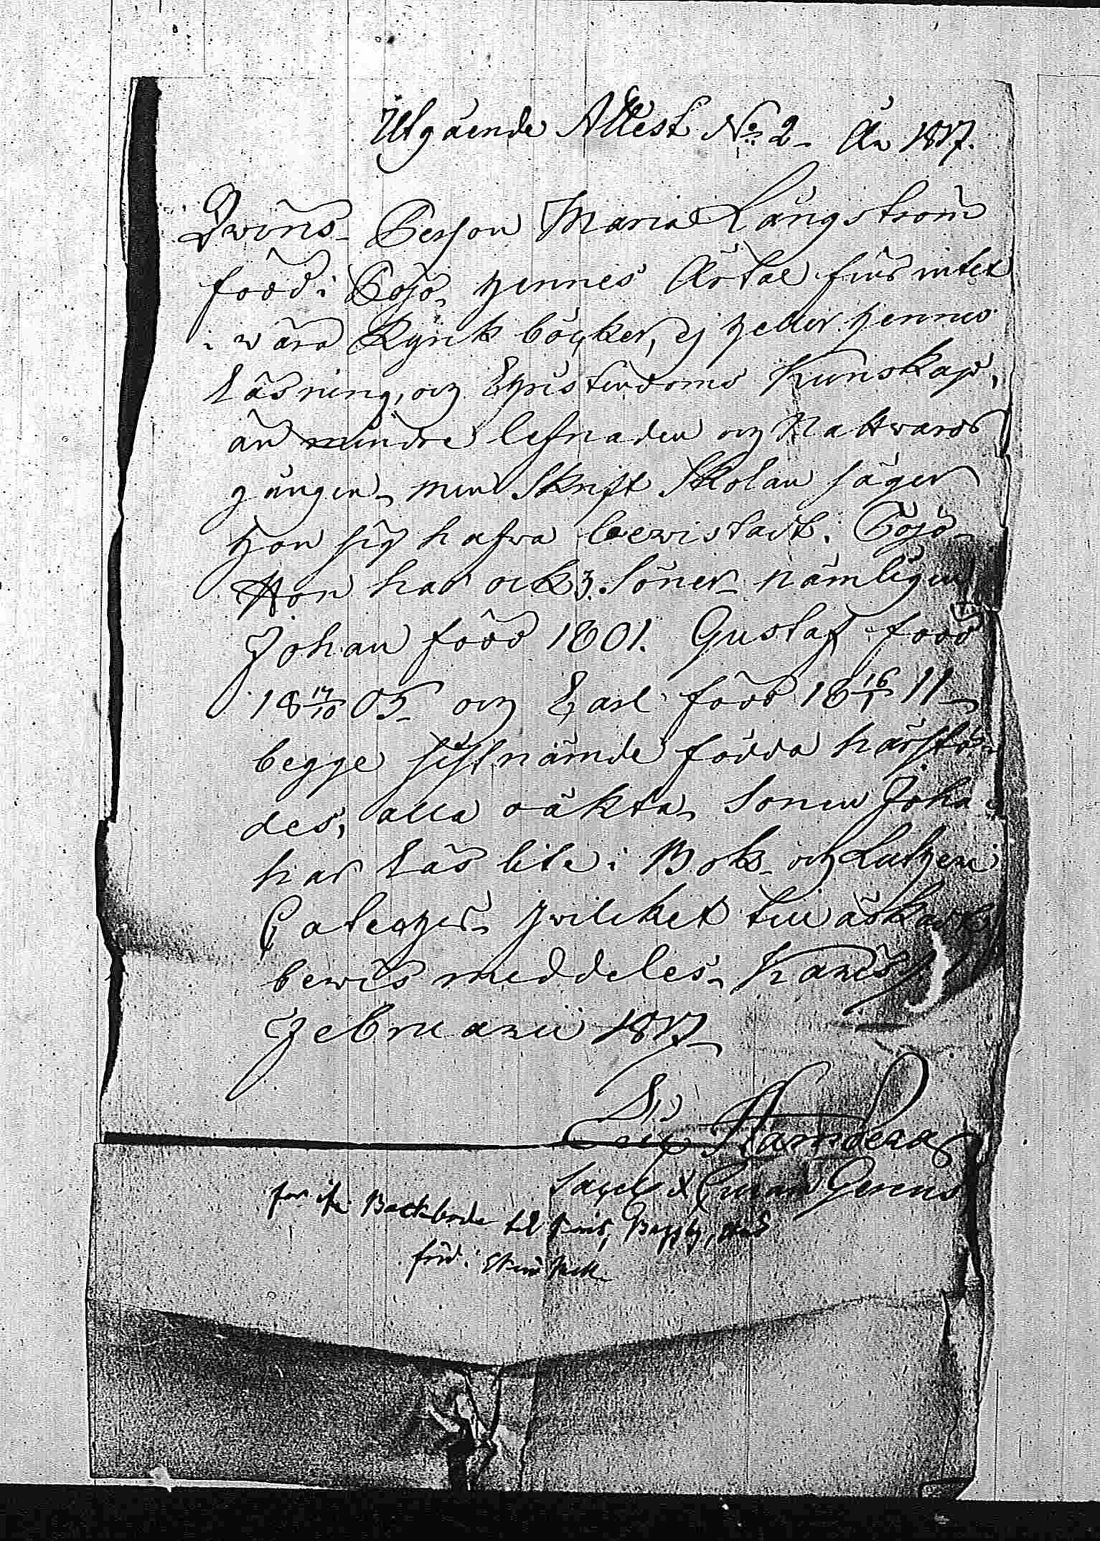 Utgående Attest No 2 År 1817.
Qwins Person Maria Långström
född i Pojo, hennes Årtal fins intet
i wåra Kyrck böcker, ej heller hennes
Läsning, och Christendoms Kunskap,
än mindre lefnaden och Nattwards
gången, men Skrift Skolan säger
hon sig hafva bewistadt i Pojo
Hon har ock 3. Söner nämligen
Johan född 1801. Gustaf född
18 17/10 05 och Carl född 18 16/1 11
begge sistnämde födda härstä-
des, alla oäkta, Sonen Johan
har Läs lite i Bok och Lutheri
Cateches hvilcket till äskadt
bewis meddeles, Karis
Februarii 1817